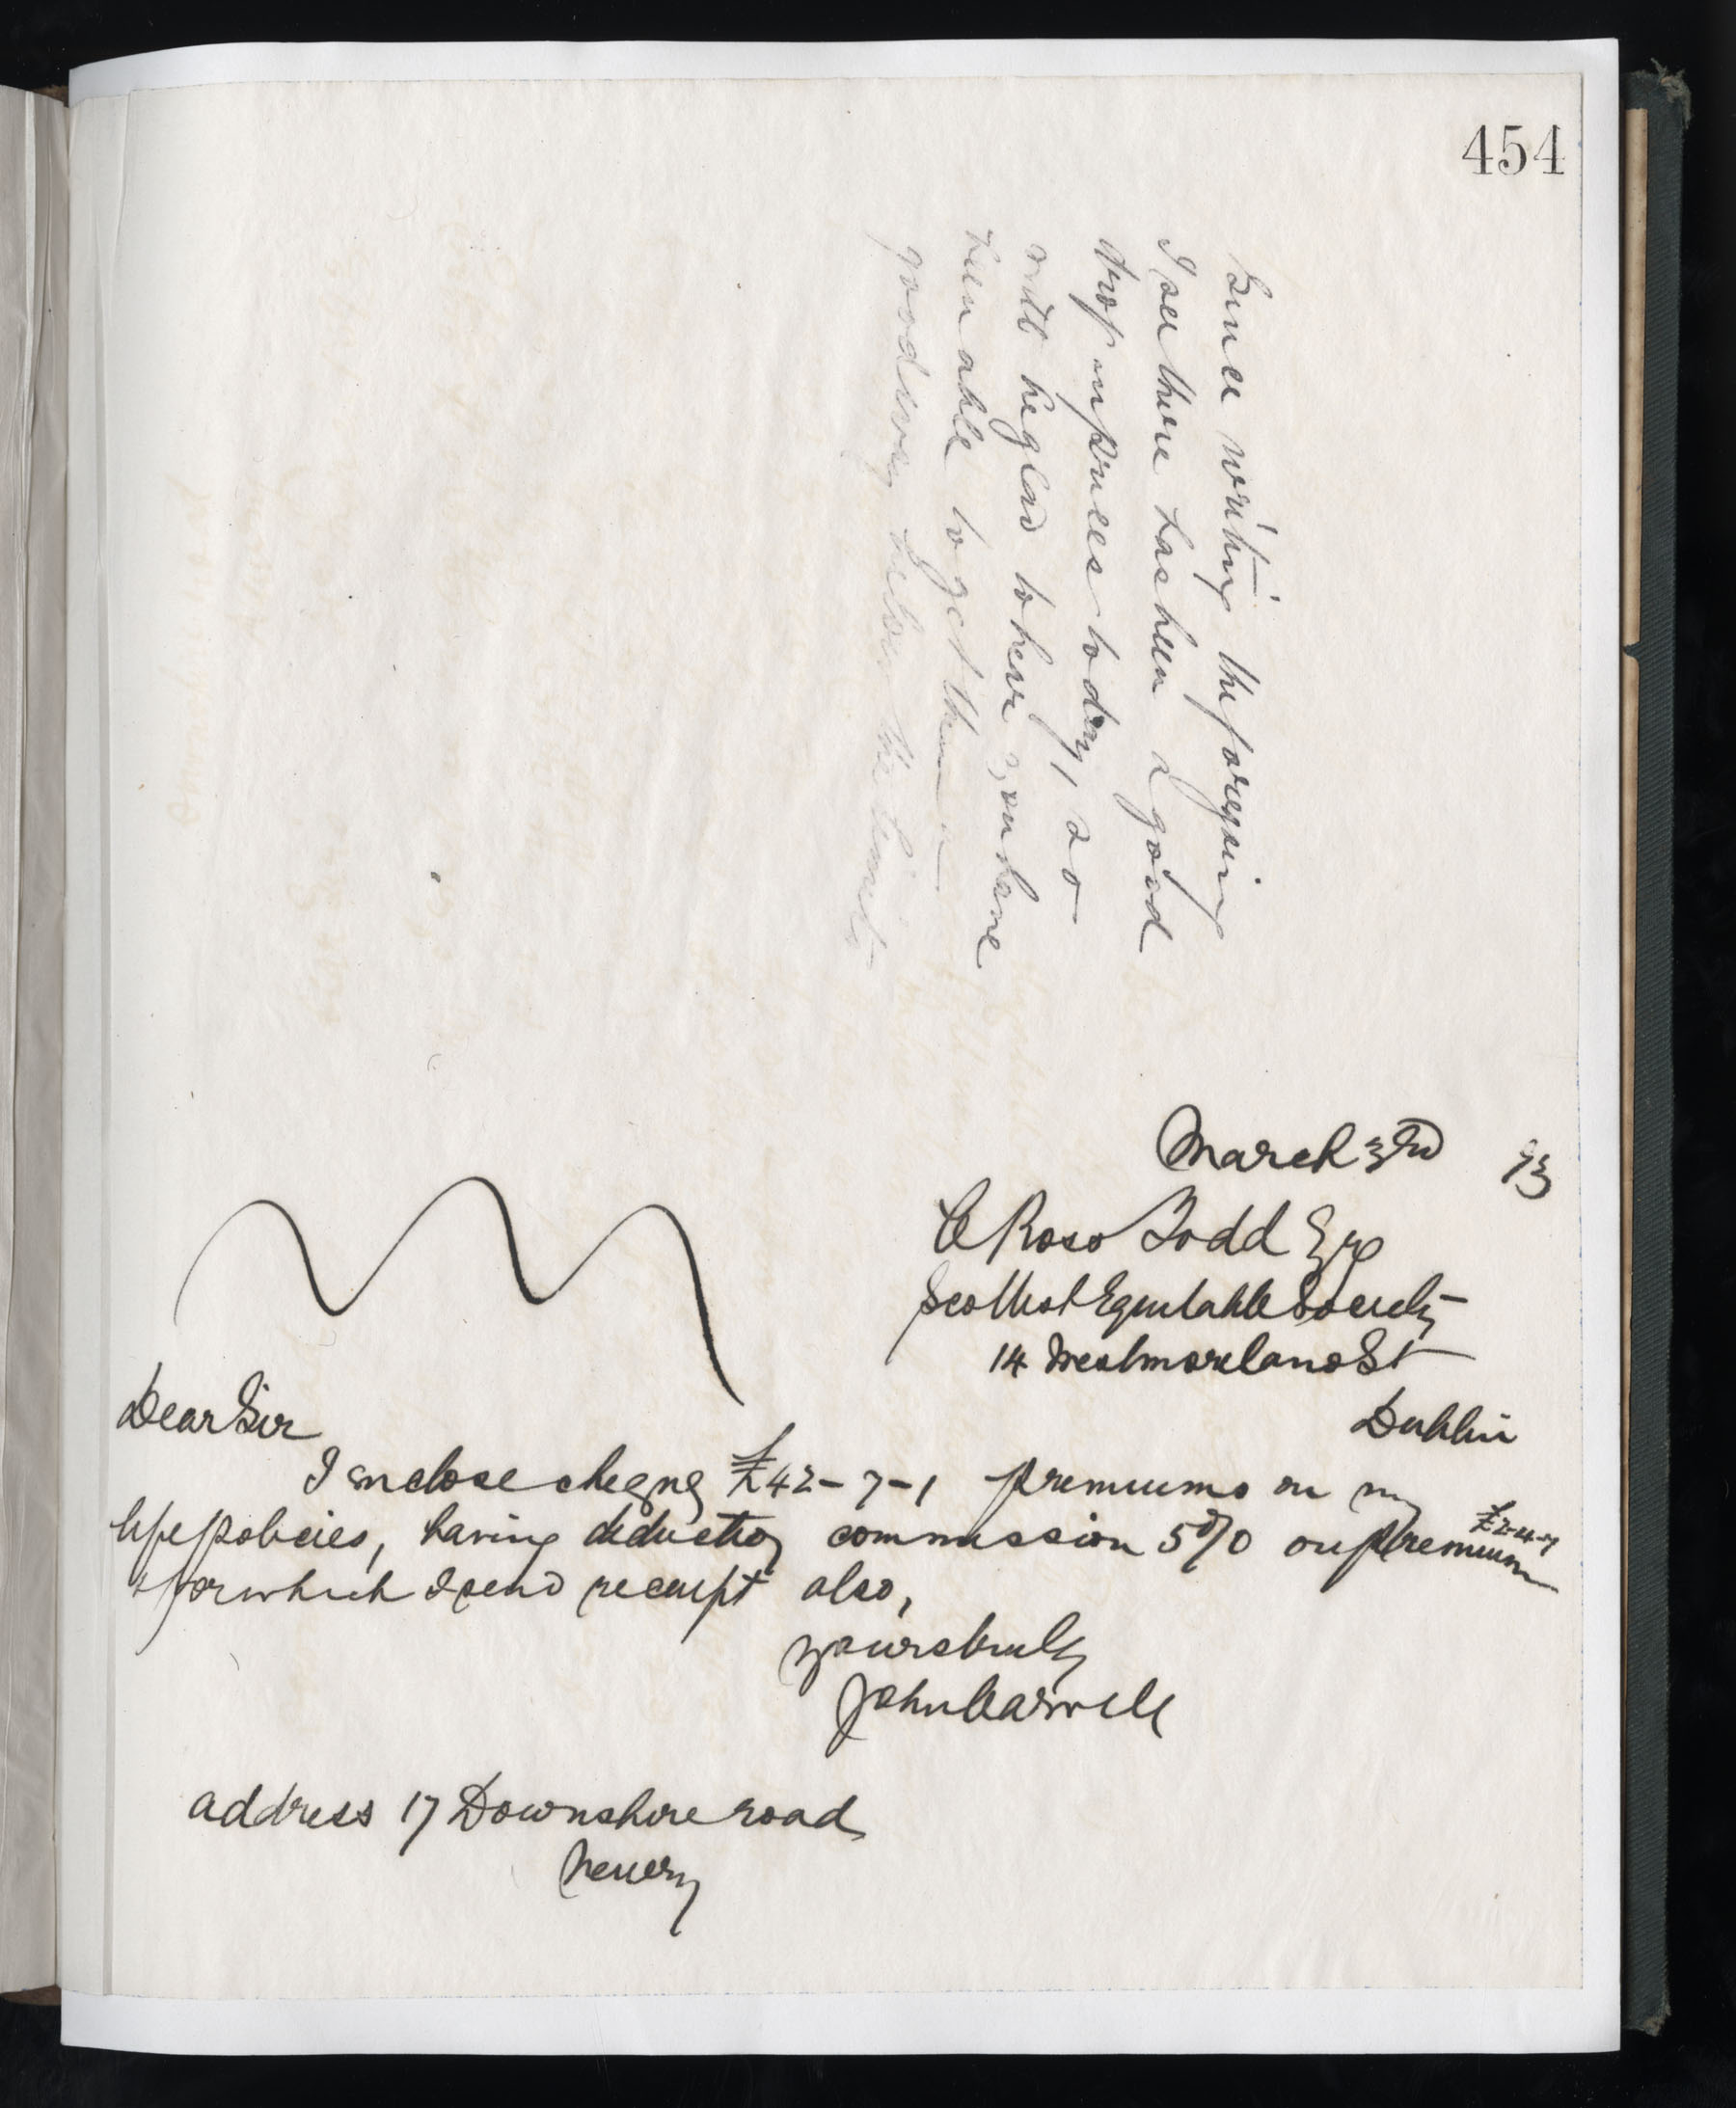 454
Since writing the foregoing
I see there has been a good
drop in prices today, so
will be glad to hear you have
been able to get them a
good way below the limit
March 3rd 93
C Ross Todd Esq
Scottish Equitable Society
14 Westmoreland St
Dublin
Dear Sir
I enclose cheque £42-7-1 premiums on my
life policies, having deducted commission 5% on premium £2-4-7
& for which I send receipt also,
yours truly
John Carvill
address 17 Downshire road
Newry